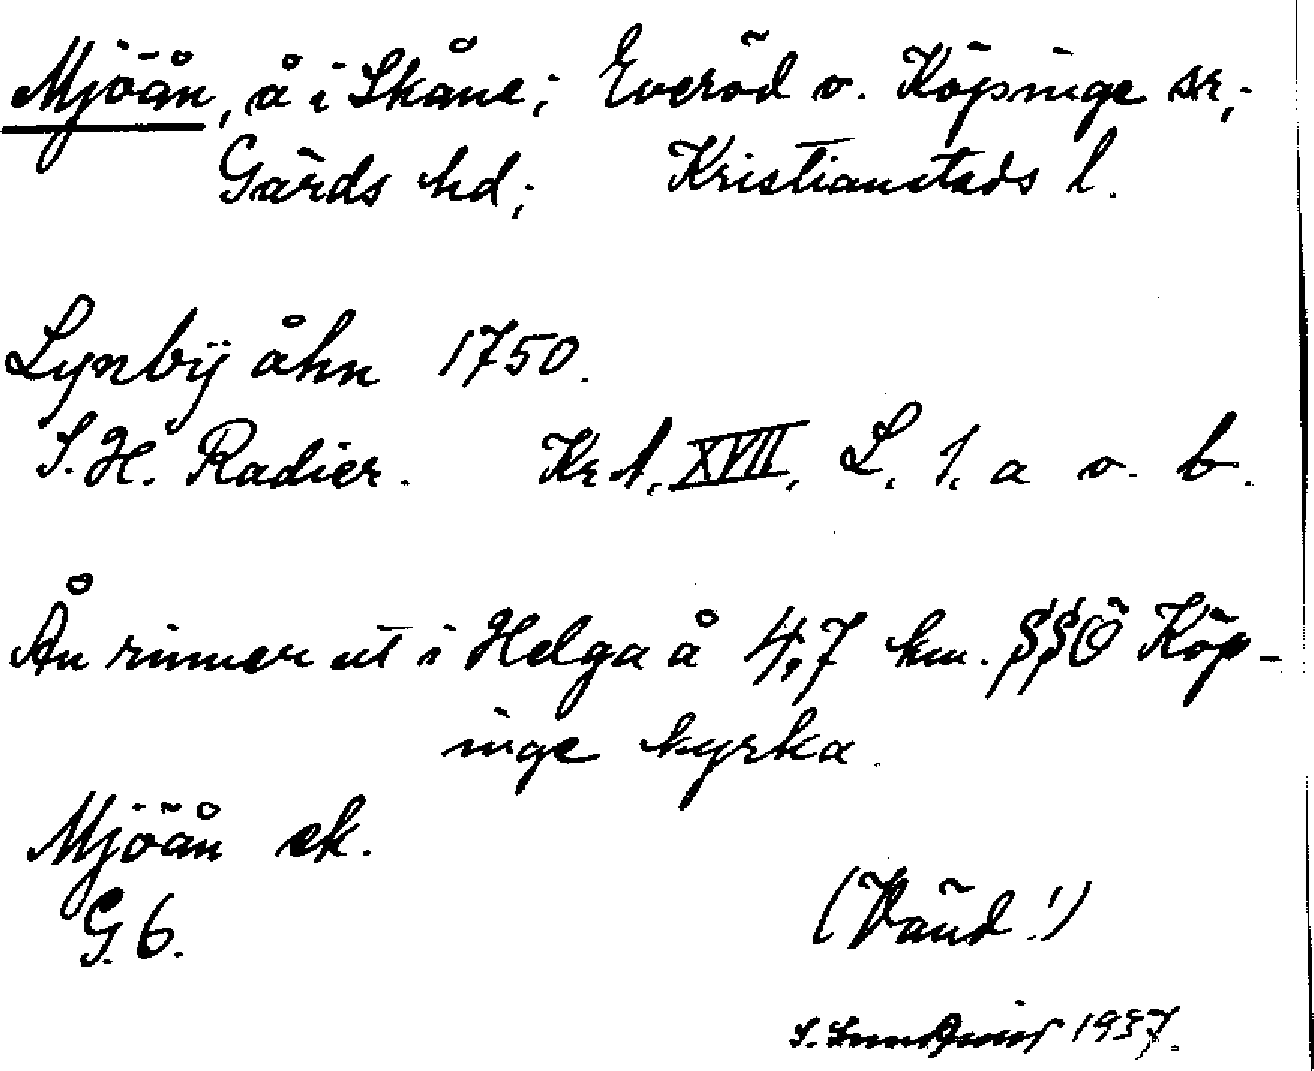 Mjöån, å i Skåne; Everöd o. Köpinge sr,;
Gärds hd; Kristianstads l.
Lynbÿ åhn 1750.
S. H. Radier. Kr. l. XVII, L. 1. a o. b.
Ån rinner ut i Helga å 4,7 km. SSÖ Köp-
inge kyrka.
Mjöån ek.
G. 6.
(Vänd!)
S. Lundqvist 1937.